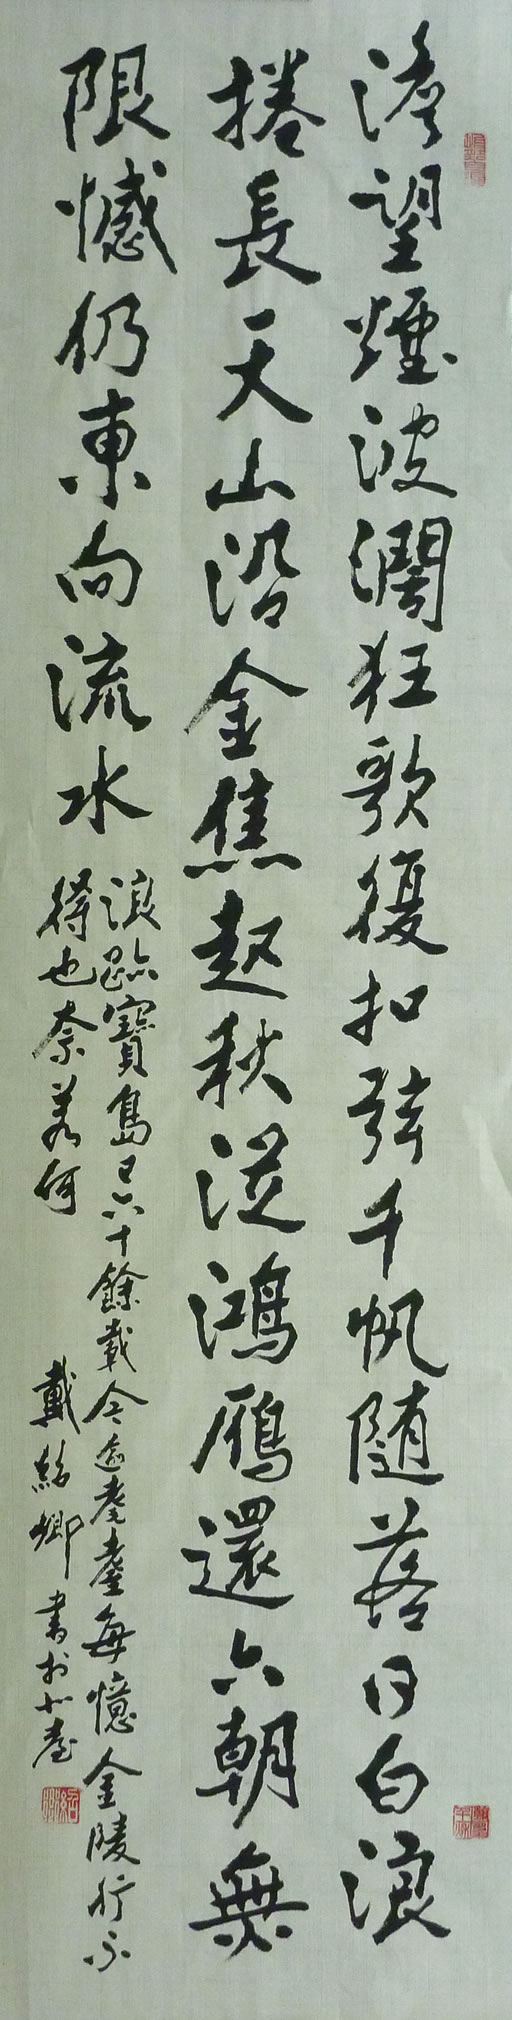 滄望煙波濶狂歌復扣弦千帆随落日白浪
捲長天山沿金焦起秋從鴻雁還六朝無
限憾仍東向流水
浪跡寶島已六十餘載今逾耄耋每憶金陵行不
得也奈若何
戴紹卿書於北臺